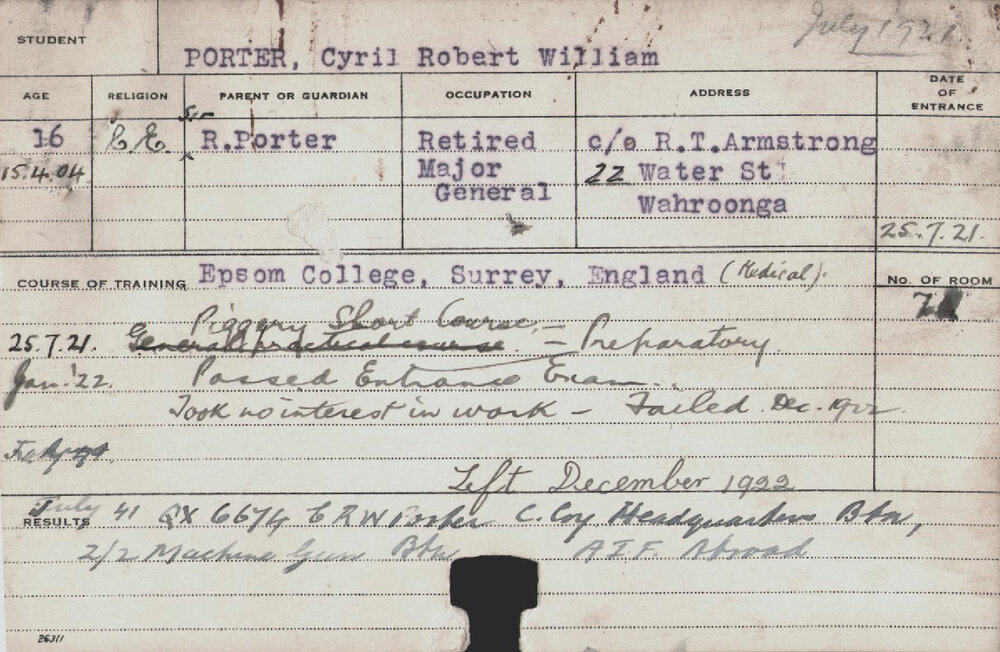 July 1921.
STUDENT
PORTER, Cyril Robert William
AGE RELIGION PARENT OR GUARDIAN OCCUPATION ADDRESS DATE OF ENTRANCE
16 C.E. Sir R.Porter Retired c/o R.T.Armstrong
15.4.04 Major 22 Water St
General Wahroonga
25.7.21.
COURSE OF TRAINING Epsom College, Surrey, England (Medical). No. OF ROOM
Piggery Short Course. —
25.7.21. General practical course — Preparatory
Jan. '22. Passed Entrance Exam..
Took no interest in work – Failed Dec. 1922.
Left December 1922
RESULTS July 41 QX 6674 C R W Porter C. Coy Headquarters Btn,
2/2 Machine Gun Btn A I F. Abroad
26311